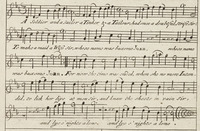 A Soldier and a Sailor a Tinker & a Tailor had once a doubtful strife Sir
To make a maid a Wife Sir, whose name was buxome Joan, whose name
was buxome Joan. For now the time was when she no more
ded, to lick her lips at men Sir, and knaw the sheets in vain Sir,
and lye o' nights alone, and lye o' nights a lone.